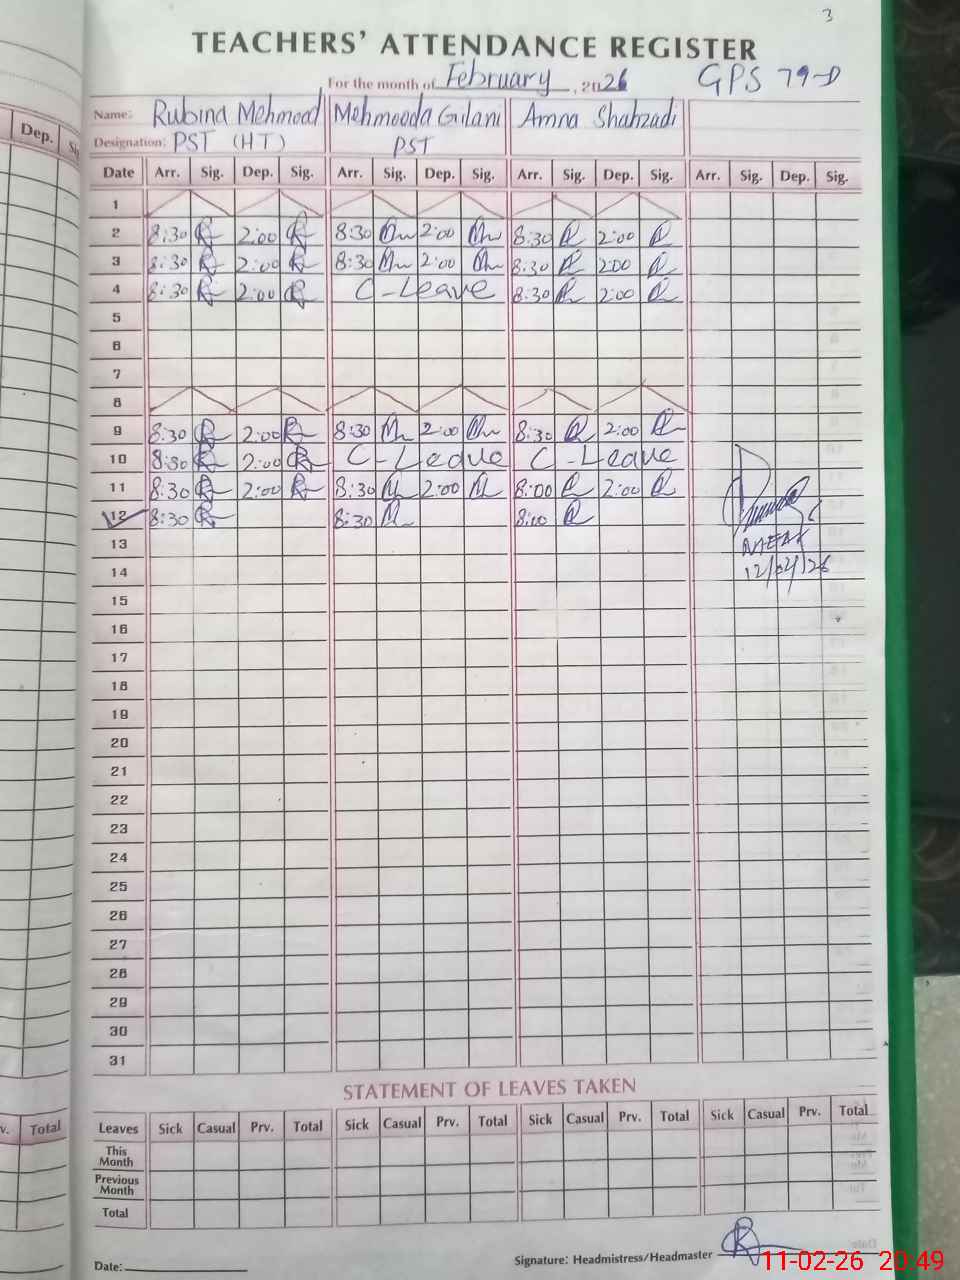 3
TEACHERS' ATTENDANCE REGISTER
For the month of February, 2026 GPS 79-D
Name: Rubina Mehmood Mehmooda Gilani Amna Shahzadi
Designation: PST (HT) PST
Date Arr. Sig. Dep. Sig. Arr. Sig. Dep. Sig. Arr. Sig. Dep. Sig. Arr. Sig. Dep. Sig.
1
2 8:30 2:00 8:30 2:00 8:30 2:00
3 8:30 2:00 8:30 2:00 8:30 2:00
4 8:30 2:00 C-Leave 8:30 2:00
5
6
7
8
9 8:30 2:00 8:30 2:00 8:30 2:00
10 8:30 2:00 C-Leave C-Leave
11 8:30 2:00 8:30 2:00 8:00 2:00
12 8:30 8:30 8:00
13
14
12/02/26
15
16
17
18
19
20
21
22
23
24
25
26
27
28
29
30
31
STATEMENT OF LEAVES TAKEN
Leaves Sick Casual Prv. Total Sick Casual Prv. Total Sick Casual Prv. Total Sick Casual Prv. Total
This Month
Previous Month
Total
Date:
Signature: Headmistress/Headmaster
11-02-26 20:49
Dep.
Total